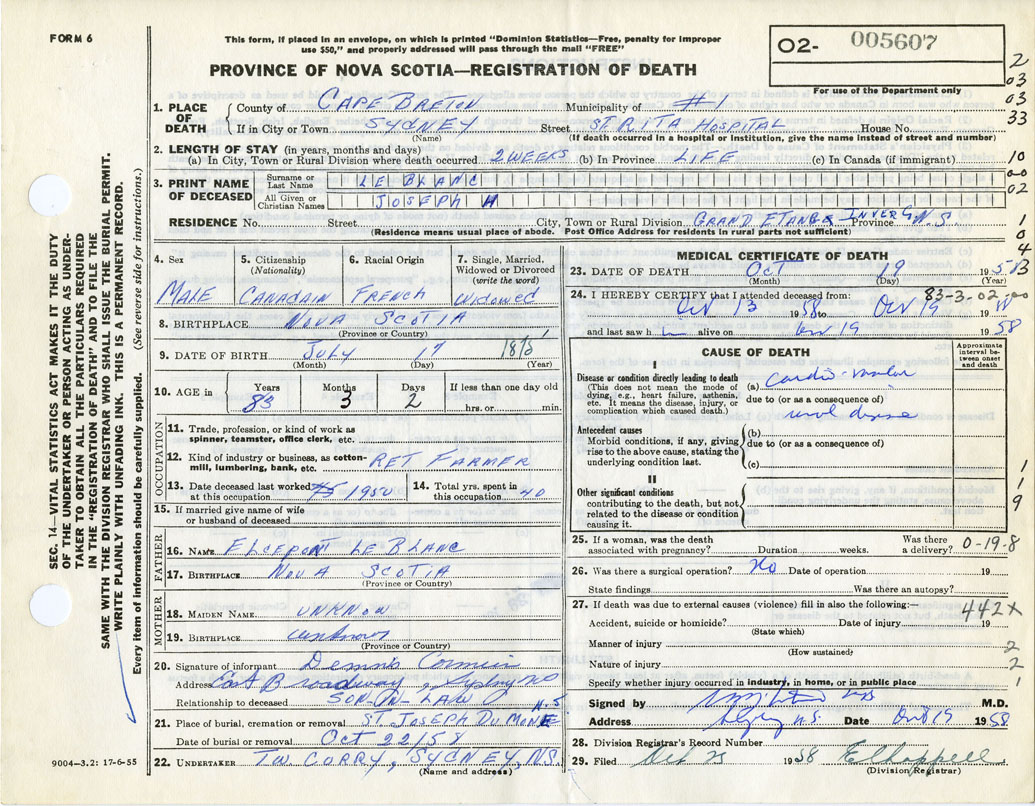 FORM 6
This form, if placed in an envelope, on which is printed "Dominion Statistics—Free, penalty for improper
use $50," and properly addressed will pass through the mail "FREE"
PROVINCE OF NOVA SCOTIA—REGISTRATION OF DEATH
02- 005607
For use of the Department only
2
03
03
33
10
02
1
0
4
SEC. 14—VITAL STATISTICS ACT MAKES IT THE DUTY
OF THE UNDERTAKER OR PERSON ACTING AS UNDER-
TAKER TO OBTAIN ALL THE PARTICULARS REQUIRED
IN THE "REGISTRATION OF DEATH" AND TO FILE THE
SAME WITH THE DIVISION REGISTRAR WHO SHALL ISSUE THE BURIAL PERMIT.
WRITE PLAINLY WITH UNFADING INK. THIS IS A PERMANENT RECORD.
Every item of information should be carefully supplied. (See reverse side for instructions.)
1. PLACE OF DEATH
County of CAPE BRETON Municipality of #1
If in City or Town SYDNEY Street ST RITA HOSPITAL House No.
(Name) (If death occurred in a hospital or institution, give the name instead of street and number)
2. LENGTH OF STAY (in years, months and days)
(a) In City, Town or Rural Division where death occurred 2 WEEKS (b) In Province LIFE (c) In Canada (if immigrant)
3. PRINT NAME OF DECEASED
Surname or Last Name LE BLANC
All Given or Christian Names JOSEPH H
RESIDENCE No. Street City, Town or Rural Division GRAND ETANG INVER Province N.S.
(Residence means usual place of abode. Post Office Address for residents in rural parts not sufficient)
4. Sex
MALE
5. Citizenship
(Nationality)
CANADAIN
6. Racial Origin
FRENCH
7. Single, Married,
Widowed or Divorced
(write the word)
WIDOWED
8. BIRTHPLACE NOVA SCOTIA
(Province or Country)
9. DATE OF BIRTH JULY 17 1875
(Month) (Day) (Year)
10. AGE in
Years Months Days If less than one day old
83 3 2 hrs. or min.
OCCUPATION
11. Trade, profession, or kind of work as
spinner, teamster, office clerk, etc.
12. Kind of industry or business, as cotton-
mill, lumbering, bank, etc. RET FARMER
13. Date deceased last worked
at this occupation 1950
14. Total yrs. spent in
this occupation 40
15. If married give name of wife
or husband of deceased
FATHER
16. NAME LE BLANC
17. BIRTHPLACE NOVA SCOTIA
(Province or Country)
MOTHER
18. MAIDEN NAME UNKNOW
19. BIRTHPLACE unknown
(Province or Country)
20. Signature of informant Dennis
Address East Broadway, Sydney NS
Relationship to deceased SON-IN-LAW
21. Place of burial, cremation or removal ST. JOSEPH DU MOINE N.S.
Date of burial or removal Oct 22/58
22. UNDERTAKER T.W. CURRY, SYDNEY, N.S.
(Name and address)
9004—3.2: 17-6-55
MEDICAL CERTIFICATE OF DEATH
23. DATE OF DEATH Oct 19 1958
(Month) (Day) (Year)
24. I HEREBY CERTIFY that I attended deceased from: 83-3-02
Oct 13 1958 to Oct 19 19
and last saw h alive on Oct 19 1958
CAUSE OF DEATH
Approximate
interval be-
tween onset
and death
I
Disease or condition directly leading to death
(This does not mean the mode of
dying, e.g., heart failure, asthenia,
etc. It means the disease, injury, or
complication which caused death.)
(a) Cardio-vascular
due to (or as a consequence of)
renal disease
Antecedent causes
Morbid conditions, if any, giving
rise to the above cause, stating the
underlying condition last.
(b)
due to (or as a consequence of)
(c)
II
Other significant conditions
contributing to the death, but not
related to the disease or condition
causing it.
1
1
9
25. If a woman, was the death
associated with pregnancy? Duration weeks. Was there
a delivery? 0-19-8
26. Was there a surgical operation? No Date of operation 19
State findings Was there an autopsy?
27. If death was due to external causes (violence) fill in also the following:—
442X
Accident, suicide or homicide? Date of injury 19
(State which)
Manner of injury 2
(How sustained)
Nature of injury 2
Specify whether injury occurred in industry, in home, or in public place 1
Signed by M.D.
Address Sydney N.S. Date Oct 19 1958
28. Division Registrar's Record Number
29. Filed Oct 23 1958 E Chappell
(Division Registrar)